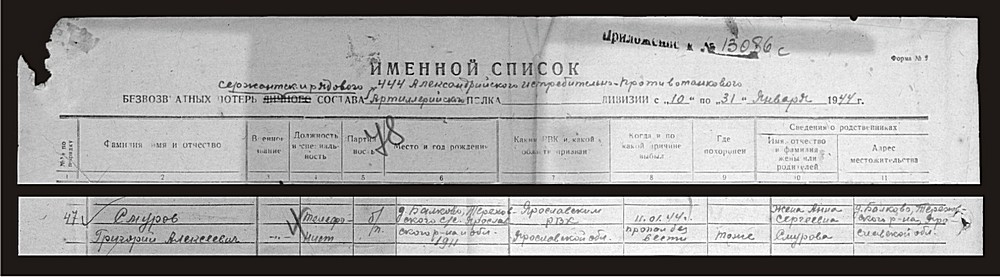 Приложение к № 13086 с
Форма № 2
ИМЕННОЙ СПИСОК
сержантск и рядового 444 Александрийского истребительно-противотанкового
БЕЗВОЗВРАТНЫХ ПОТЕРЬ ЛИЧНОГО СОСТАВА Артиллерийск ПОЛКА ДИВИЗИИ с „10“ по „31“ Января 1944 г.
78
Сведения о родственниках
№№ по порядку Фамилия имя и отчество Военное звание Должность и специальность Партийность Место и год рождения Каким РВК и какой области призван Когда и по какой причине выбыл Где похоронен Имя, отчество и фамилия жены или родителей Адрес местожительства
1 2 3 4 5 6 7 8 9 10 11
47 Смуров телефо- б/ д. Балково, Ярославским 11.01.44г. Жена Анна д. Балково,
ского с/с Яросла РВК пропал без Сергеевна ского р-на, Яро
Григорий Алексеевич нист п. ского р-на и обл. Ярославской обл. вести тоже Смурова славской обл.
1911